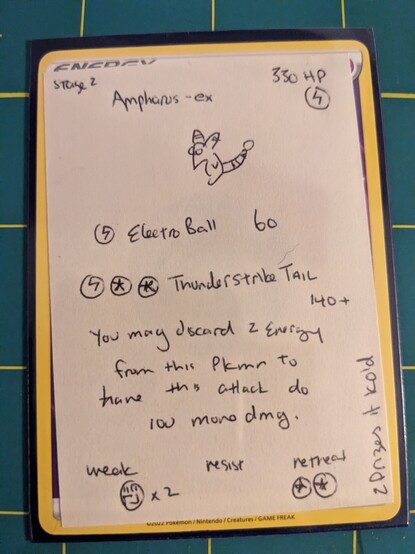 ENERGY
Stage 2
330 HP
Ampharos-ex
Electro Ball 60
Thunderstrike Tail
140+
You may discard 2 Energy
from this Pkmn to
have this attack do
100 more dmg.
weak resist retreat
x2
2 Prizes if KOd
©2022 Pokémon / Nintendo / Creatures / GAME FREAK